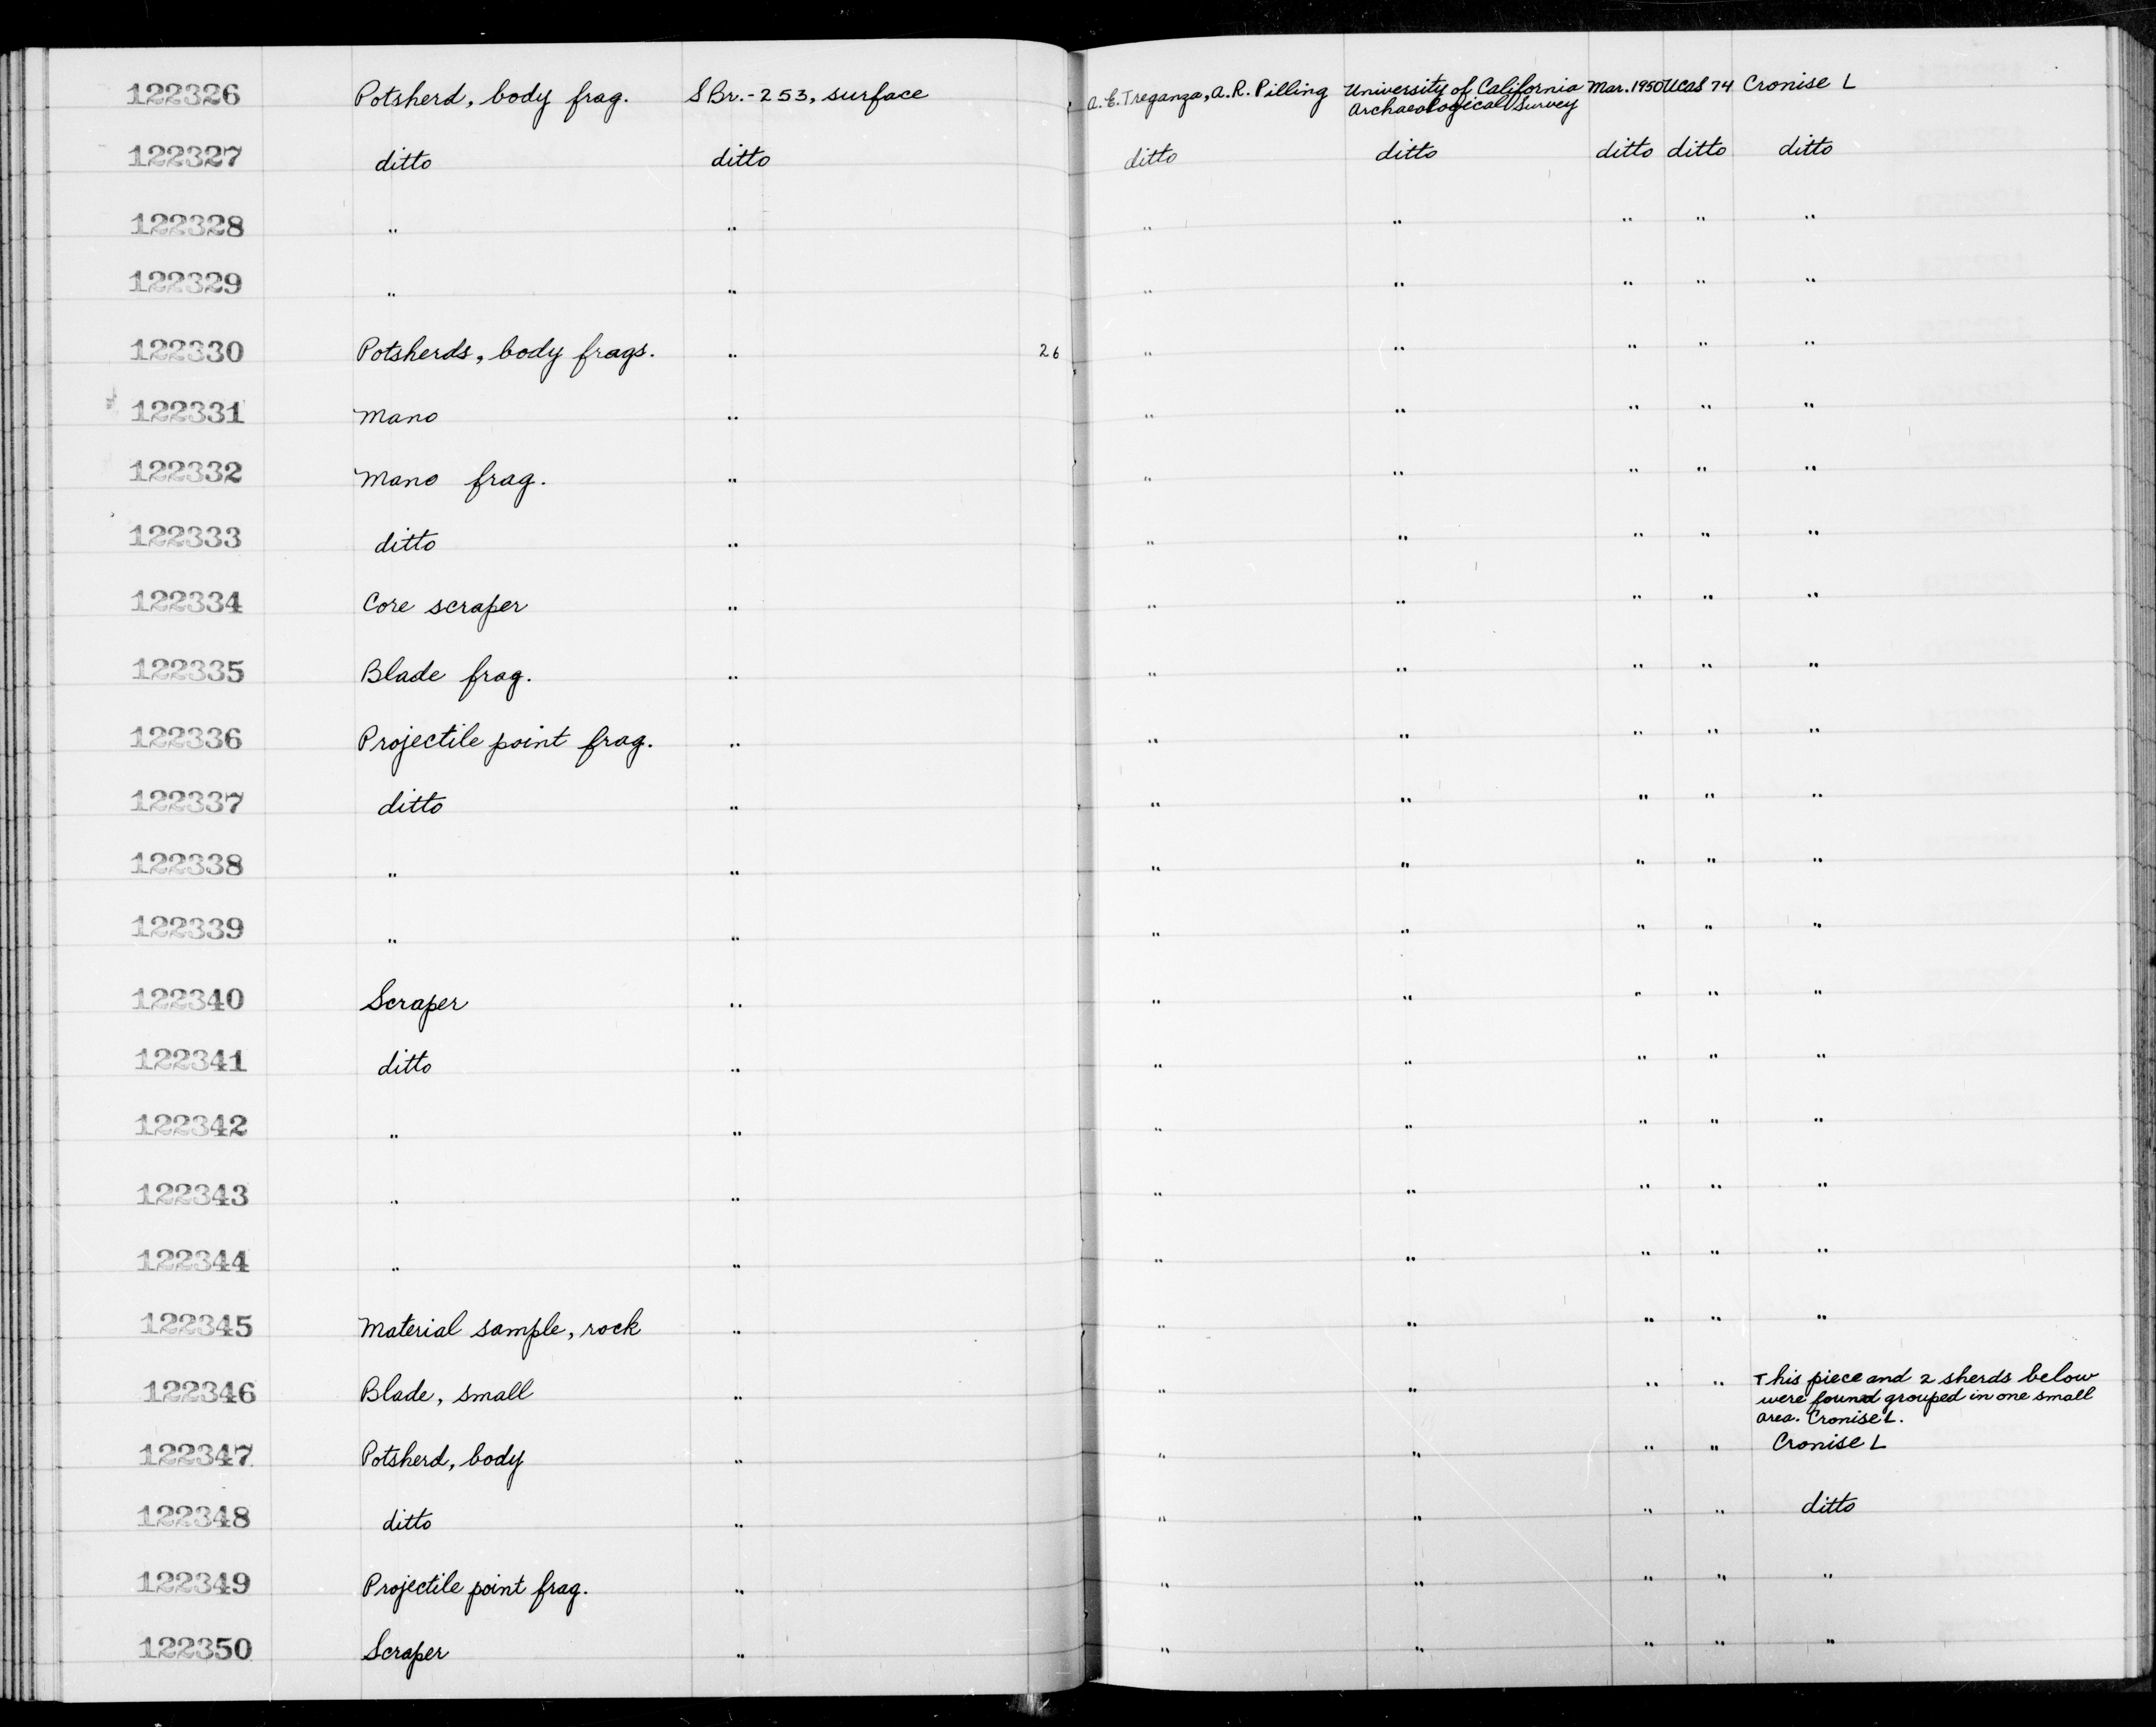 122326 Potsherd, body frag. SBr.-253, surface A.E. Treganza, A.R. Pilling University of California Mar. 1950 UCAS 74 Cronise L
Archaeological Survey
122327 ditto ditto ditto ditto ditto ditto ditto
122328 " " " " " " "
122329 " " " " " " "
122330 Potsherds, body frags. " 26 " " " " "
122331 Mano " " " " " "
122332 Mano frag. " " " " " "
122333 ditto " " " " " "
122334 Core scraper " " " " " "
122335 Blade frag. " " " " " "
122336 Projectile point frag. " " " " " "
122337 ditto " " " " " "
122338 " " " " " " "
122339 " " " " " " "
122340 Scraper " " " " " "
122341 ditto " " " " " "
122342 " " " " " " "
122343 " " " " " " "
122344 " " " " " " "
122345 Material sample, rock " " " " " "
122346 Blade, small " " " " " This piece and 2 sherds below
were found grouped in one small
area. Cronise L.
122347 Potsherd, body " " " " " Cronise L
122348 ditto " " " " " ditto
122349 Projectile point frag. " " " " " "
122350 Scraper " " " " " "